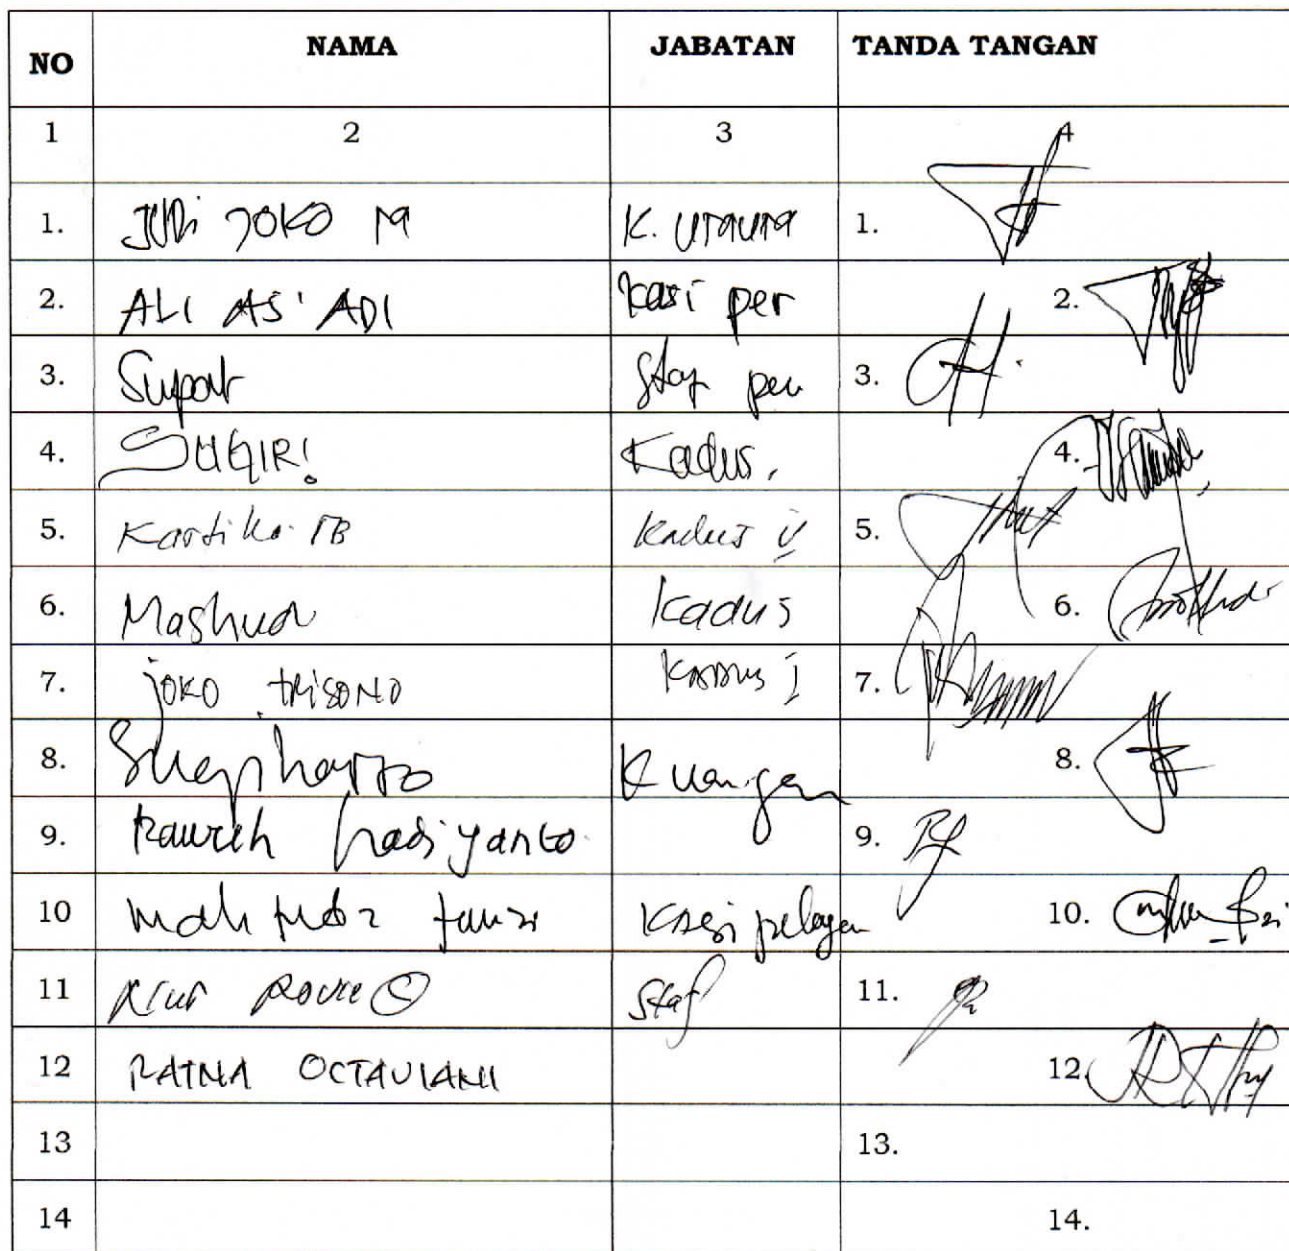 NO NAMA JABATAN TANDA TANGAN
1 2 3 4
1. JUDi JOKO M K. UMUM 1.
2. ALI AS'ADI kasi per 2.
3. Supart staf per 3.
4. SUGIRI Kadus. 4.
5. Kartika PB kadus V 5.
6. Mashudi Kadus 6.
7. joko triSONO KADUS I 7.
8. Sugiharto Kuangan 8.
9. hadiyanto 9.
10 fauzi Kasi pelayan 10.
11 Staf 11.
12 RATNA OCTAVIANI 12.
13 13.
14 14.